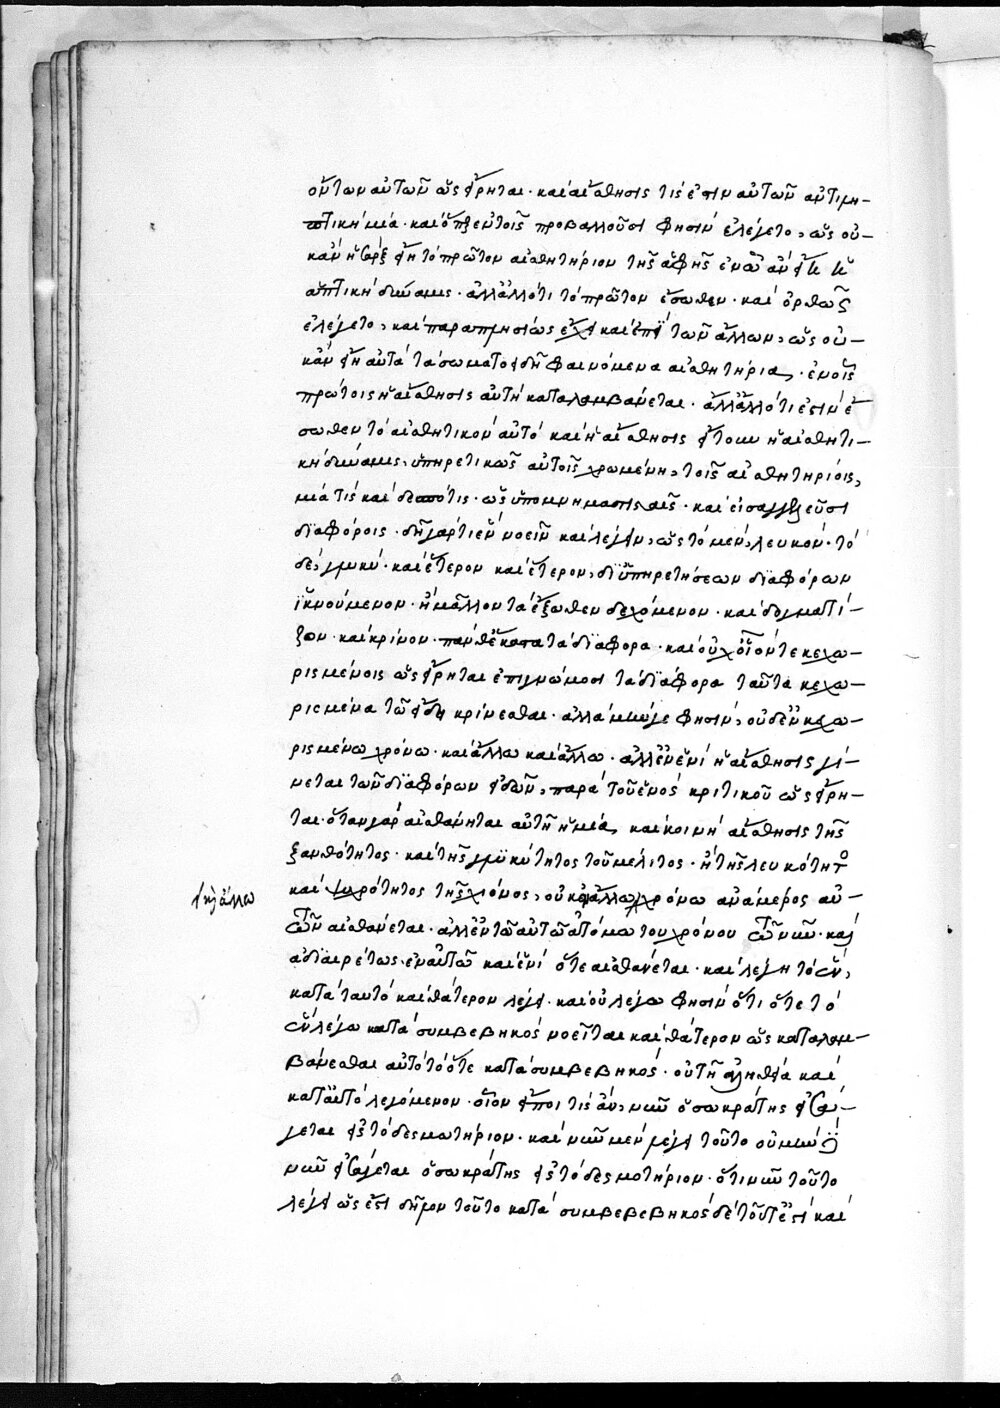 οὔτων αὐτῶν ὡς εἴρηται· καὶ αἴσθησις τίς ἐστιν αὐτῶν ἀντιλη-
πτικὴ μία· καὶ ὅπερ ἐν τοῖς προβαλλοῦσι φησὶν ἐλέγετο, ὡς οὐ-
κἂν ἡ σὰρξ εἴη τὸ πρῶτον αἰσθητήριον τῆς ἁφῆς ἐν ᾧ ἂν εἴη ἡ
ἁπτικὴ δύναμις· ἀλλ' ἄλλό τι τὸ πρῶτον ἔσωθεν· καὶ ὀρθῶς
ἐλέγετο, καὶ παραπλησίως ἔχει καὶ ἐπὶ τῶν ἄλλων, ὡς οὐ-
κἂν εἴη αὐτὰ τὰ σωματοειδῆ φαινόμενα αἰσθητήρια, ἐν οἷς
πρώτοις ἡ αἴσθησις αὐτὴ καταλαμβάνεται· ἀλλ' ἄλλό τι ἐστὶν ἔ-
σωθεν τὸ αἰσθητικὸν αὐτὸ καὶ ἡ αἴσθησις ἤτοι ἡ αἰσθητι-
κὴ δύναμις, ὑπηρετικῶς αὐτοῖς χρωμένη, τοῖς αἰσθητηρίοις,
μία τίς καὶ δεσπότις· ὡς ὑπομνημασταῖς· καὶ εἰσαγγελεῦσι
διαφόροις· δεῖ γὰρ τι ἓν νοεῖν καὶ λέγειν, ὡς τὸ μὲν, λευκόν· τὸ
δὲ, γλυκύ· καὶ ἕτερον καὶ ἕτερον, δι' ὑπηρετήσεων διαφόρων
ἱκνούμενον· ἢ μᾶλλον τὰ ἔξωθεν δεχόμενον· καὶ δογματί-
ζον· καὶ κρίνον· πάνθ' ἕκαστα τὰ διάφορα· καὶ οὐχ οἷόν τε κεχω-
ρισμένοις ὡς εἴρηται ἐπιγνώμοσι τὰ διάφορα ταῦτα κεχω-
ρισμένα τῷ εἴδει κρίνεσθαι· ἀλλὰ μὴν γε φησὶν, οὐδ' ἐν κεχω-
ρισμένω χρόνω· καὶ ἄλλω καὶ ἄλλω· ἀλλ' ἐν ἑνὶ ἡ αἴσθησις γί-
νεται τῶν διαφόρων εἰδῶν, παρὰ τοῦ ἑνὸς κριτικοῦ ὡς εἴρη-
ται· ὅταν γὰρ αἰσθάνηται αὐτὴ ἡ μία, καὶ κοινὴ αἴσθησις τῆς
ξανθότητος· καὶ τῆς γλυκύτητος τοῦ μέλιτος· ἢ τῆς λευκότητος
καὶ ψυχρότητος τῆς χιόνος, οὐκ ἄλλω χρόνω ἀνὰ μέρος αὐ-
ἐν ἄλλω
τῶν αἰσθάνεται· ἀλλ' ἐν τῷ αὐτῷ ἀτόμω του χρόνου τῷ νῦν· καὶ
ἀδιαιρέτως ἐν αὐτῷ καὶ ἑνὶ ὅτε αἰσθάνεται· καὶ λέγει τὸ ἓν,
κατὰ ταυτὸ καὶ θάτερον λέγει· καὶ οὐ λέγω φησὶν ὅτι ὅτε τὸ
ἓν λέγω κατὰ συμβεβηκὸς νοεῖται καὶ θάτερον ὡς καταλαμ-
βάνεσθαι αὐτὸ τὸ ὅτε κατὰ συμβεβηκός· οὕτη ἀληθεία καὶ
κατ' αὐτὸ λεγόμενον· οἷον εἴποι τίς ἂν, νῦν ὁ σωκράτης εἰσά-
γεται εἰς τὸ δεσμωτήριον· καὶ νῦν μὲν λέγει τοῦτο οὐ μὴν δὲ
νῦν εἰσάγεται ὁ σωκράτης εἰς τὸ δεσμωτήριον· ὅτι νῦν τοῦτο
λέγει ὡς ἔστι δῆλον τοῦτο κατὰ συμβεβεβηκὸς δὲ τοῦτ' ἔστι καὶ